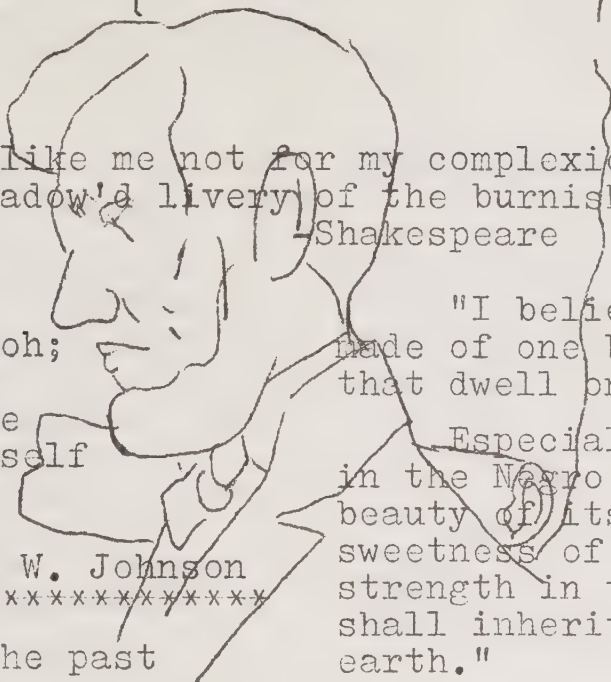 like me not for my complexi
adow'd livery of the burnish
-Shakespeare
oh;
e
self
W. Johnson
************
he past
"I belie
made of one
that dwell on
Especial
in the Negro
beauty of its
sweetness of
strength in
shall inherit
earth."